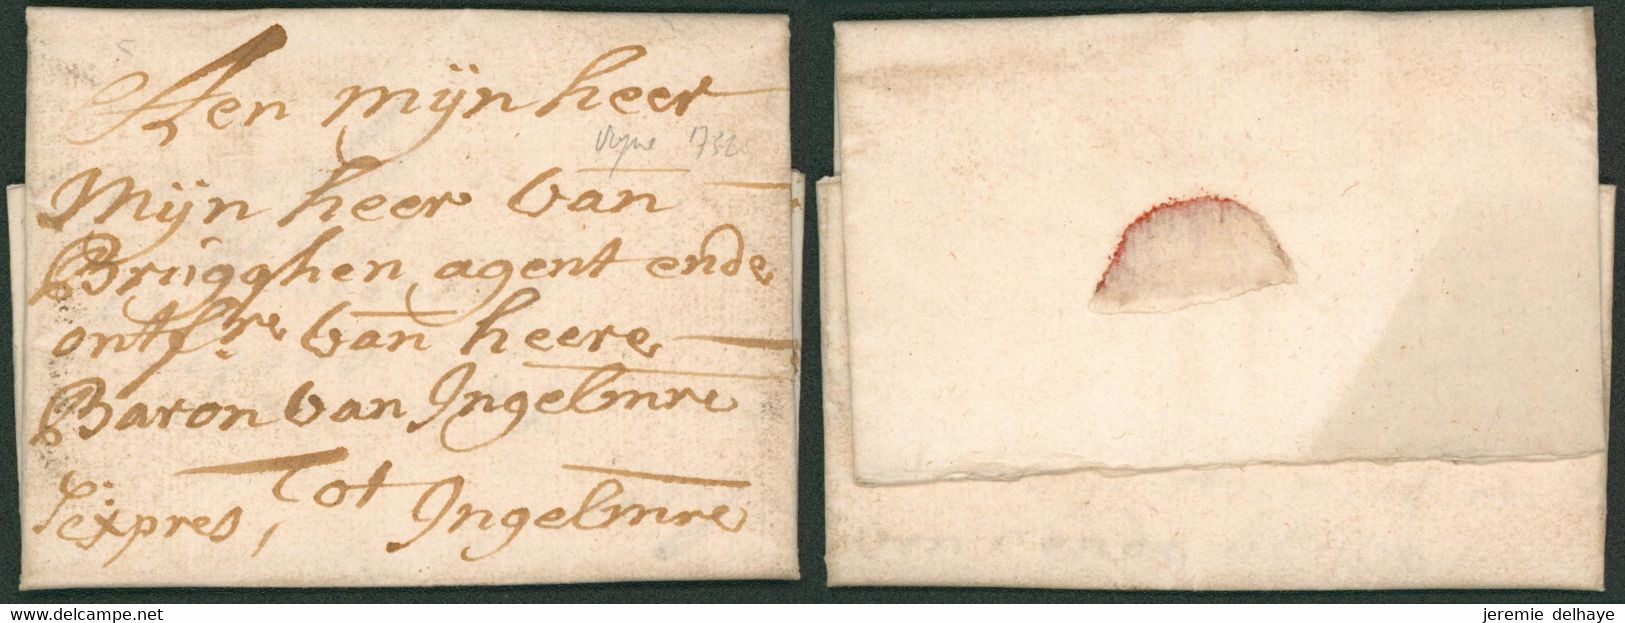 Aen mijn heer
1732
Mijn heer van
Brugghen agent ende
ontfre van heere
Baron van Ingelmre
Tot Ingelmre
expres,
delcampe.net
jeremie delhaye